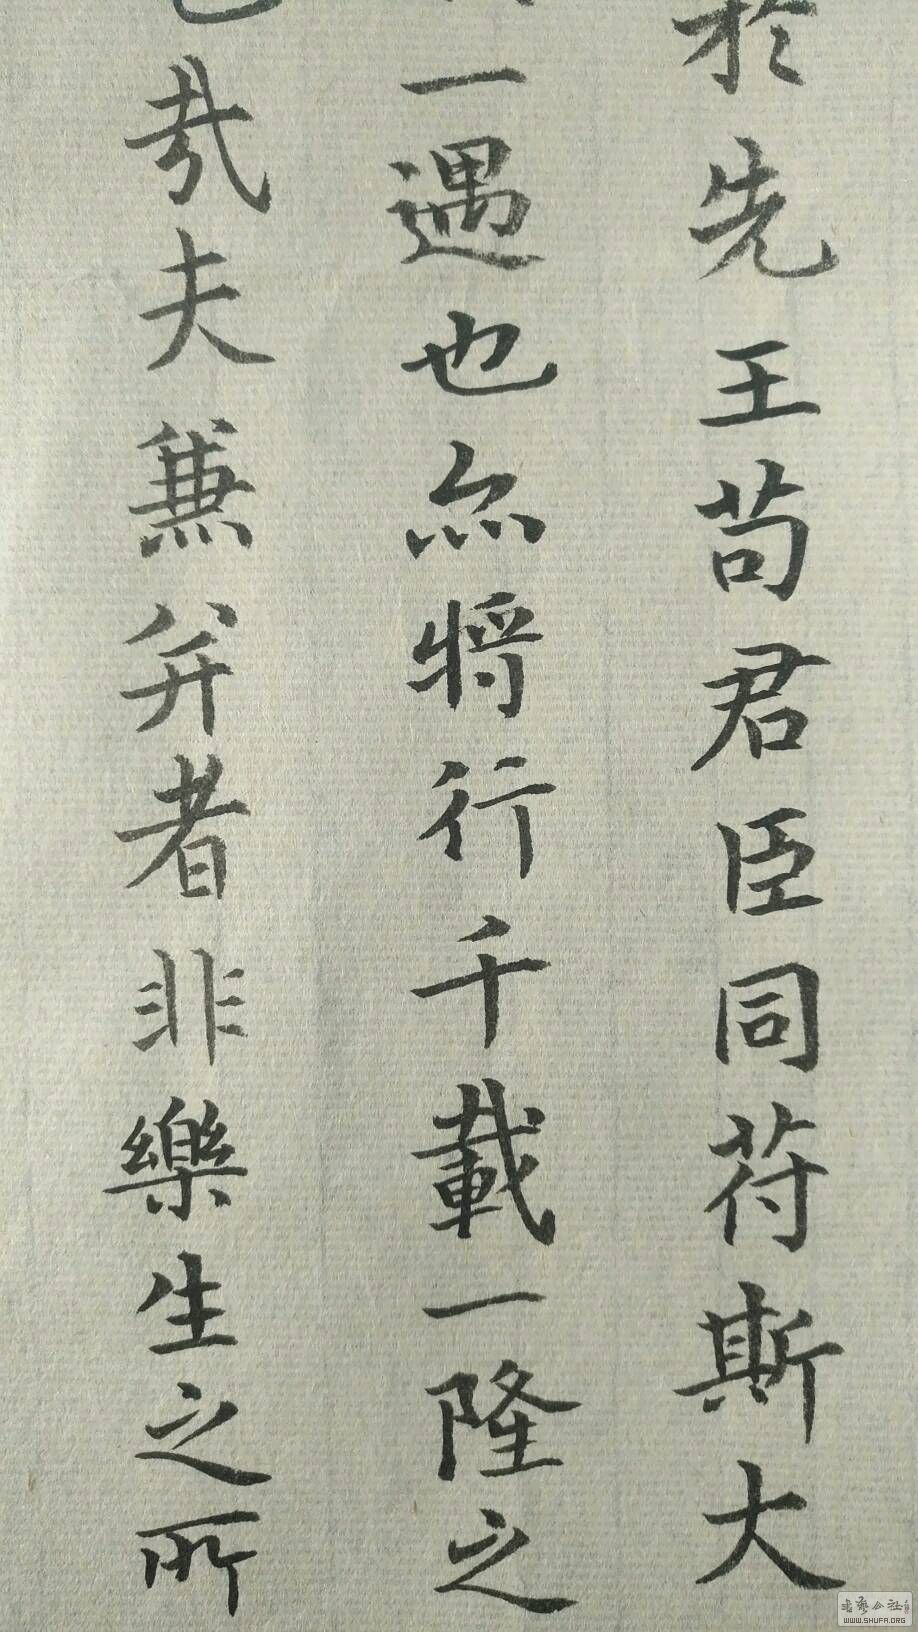 於先王苟君臣同苻斯大
一遇也亦將行千載一隆之
哉夫兼并者非樂生之所
WWW.SHUFA.ORG